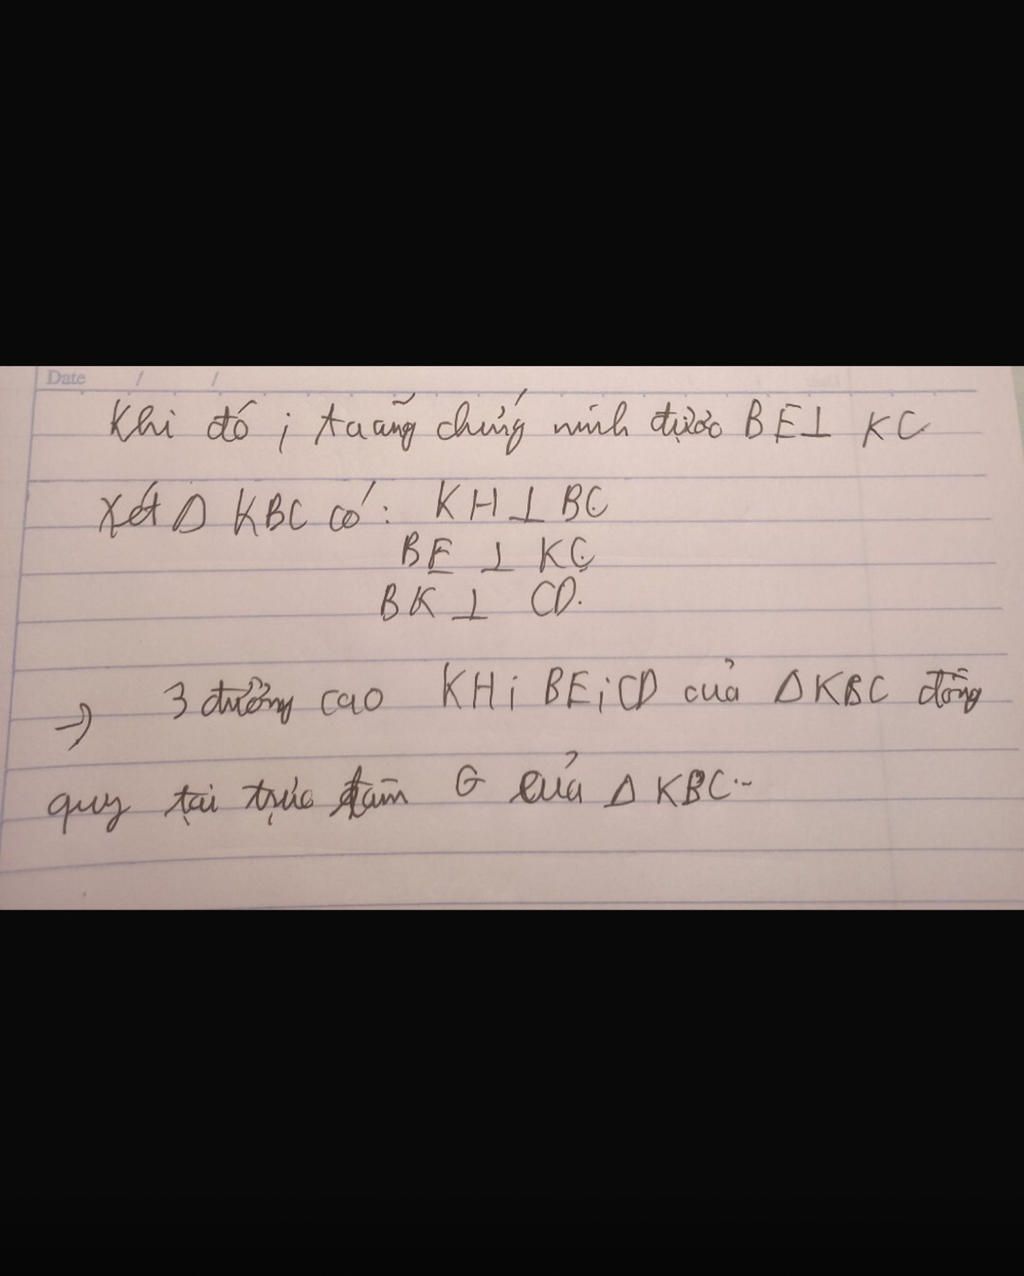 Date / /
Khi đó ; ta cũng chứng minh được BE ⊥ KC
Xét Δ KBC có: KH ⊥ BC
BE ⊥ KC
BK ⊥ CD.
→ 3 đường cao KH; BE; CD của Δ KBC đồng
quy tại trực tâm G của Δ KBC..